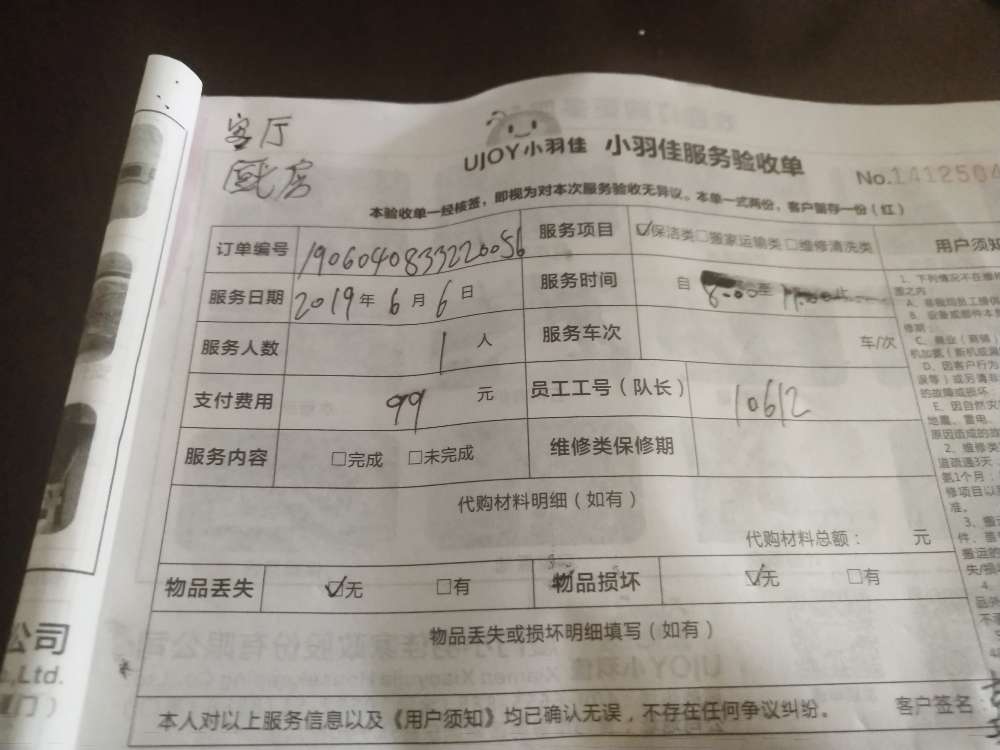 客厅
厨房
UJOY小羽佳 小羽佳服务验收单
No.1412504
本验收单一经核签，即视为对本次服务验收无异议。本单一式两份，客户留存一份（红）
订单编号 1906040833220056 服务项目 ☑保洁类□搬家运输类□维修清洗类 用户须知
服务日期 2019年6月6日 服务时间 自 8:00至11:00止
服务人数 1人 服务车次 车/次
支付费用 99元 员工工号（队长） 10612
服务内容 □完成 □未完成 维修类保修期
代购材料明细（如有）
代购材料总额： 元
物品丢失 ☑无 □有 物品损坏 ☑无 □有
物品丢失或损坏明细填写（如有）
本人对以上服务信息以及《用户须知》均已确认无误，不存在任何争议纠纷。 客户签名：
1、下列情况不在维修
围之内
A、非我司员工提供
B、设备或部件本
修期；
C、商业（商铺）
机加氨（新机或漏
D、因客户行为
误等）或另请非
的故障或损坏；
E、因自然灾
地震、雷电、
原因造成的故
2、维修类
道疏通3天；
氨1个月；
修项目以
准。
3、搬
件、重
搬运的
失/损
4、
公司
,Ltd.
门）